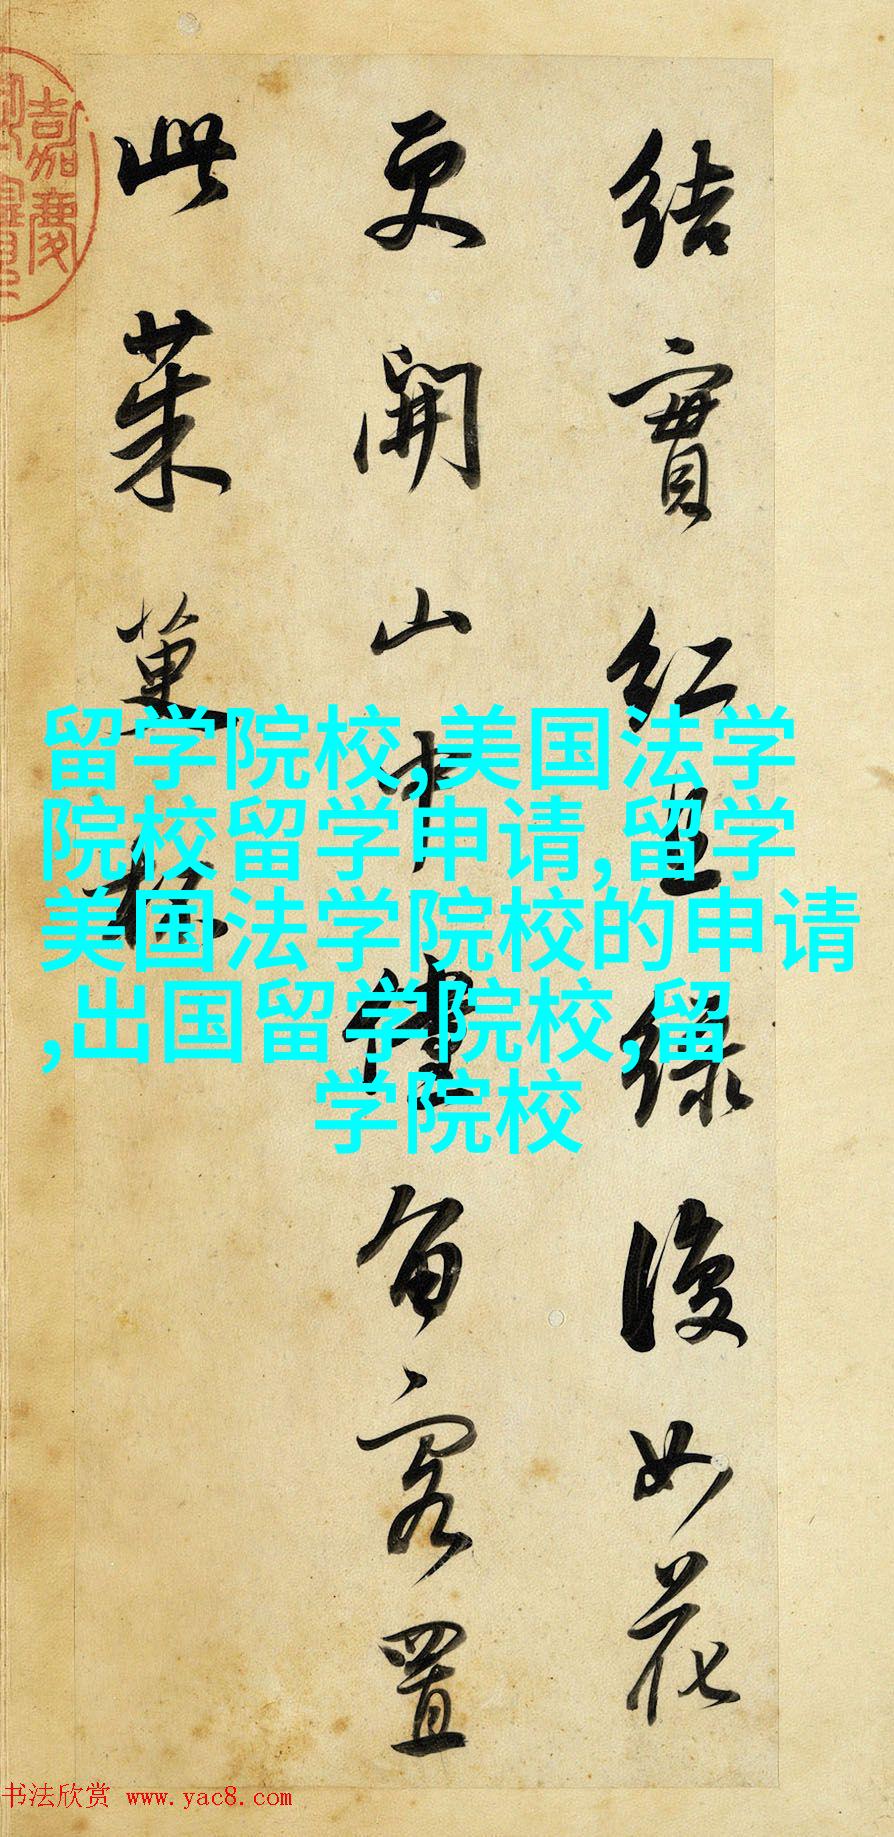 結實紅且綠復如花
更開山中儻留客置
此茱萸杯
嘉慶
留学院校,美国法学
院校留学申请,留学
美国法学院校的申请
,出国留学院校,留
学院校
书法欣赏 www.yac8.com